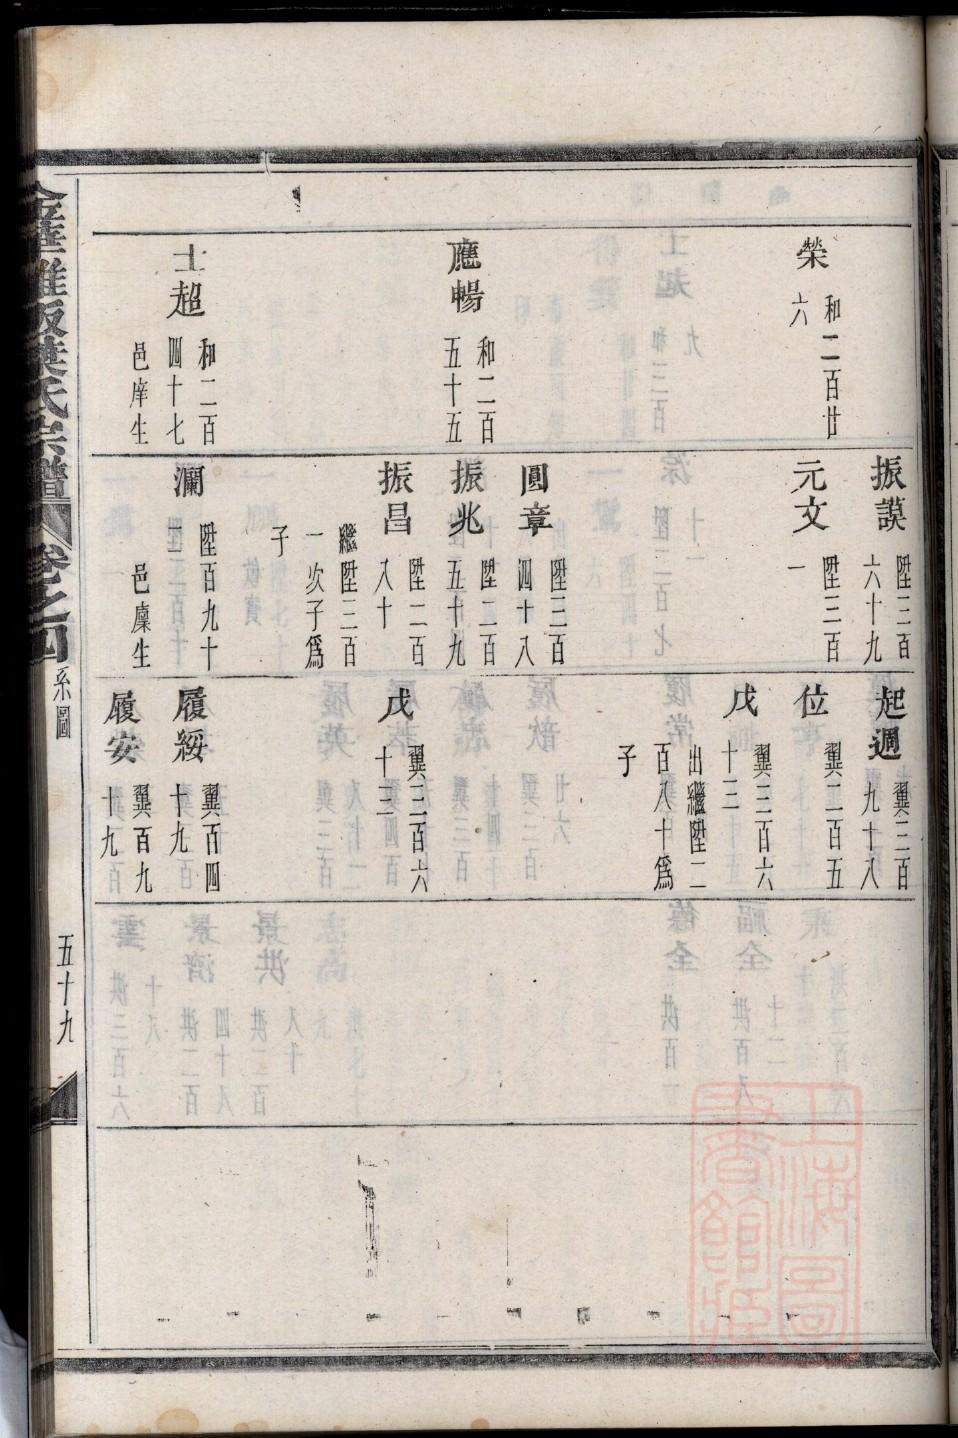 榮
和二百廿
六
應暢
和二百
五十五
士超
和二百
四十七
邑庠生
振謨
陞三百
六十九
元文
陞三百
一
圓章
陞三百
四十八
振兆
陞二百
五十九
振昌
陞二百
八十
繼陞三百
一次子爲
子
瀾
陞百九十
邑廩生
起週
翼三百
九十八
位
翼二百五
戊
翼三百六
十三
出繼陞二
百八十爲
子
戊
翼三百六
十三
履綏
翼百四
十九
履安
翼百九
十九
氏宗譜
卷之四
系圖
五十九
上海圖
書館藏